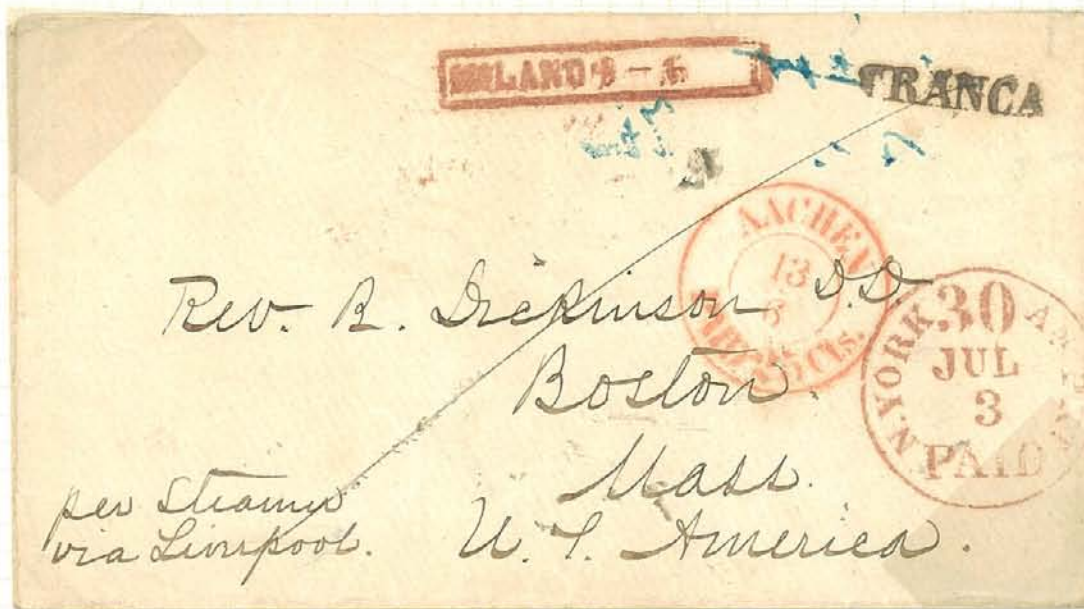 FRANCA
AACHEN
13
N.YORK 30 AM. PKT
JUL
3
PAID
Rev. R. Dickinson D.D
Boston.
Mass.
U. S. America.
per Steamer
via Liverpool.